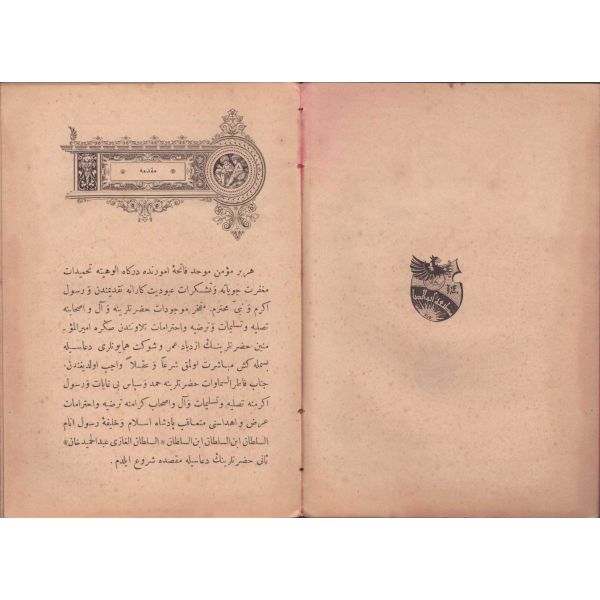 مقدمه
هربر مؤمن موحد فاتحهٔ امورنده درکاه الوهیته تحمیدات
مغفرت جویانه وتشکرات عبودیت کارانه تقدیمندن و رسول
اکرم و نبی محترم، مفخر موجودات حضرتلرینه و آل و اصحابنه
تصلیه وتسلیمات و ترضیه و احترامات تلاوتندن صکره امیرالمؤ-
منین حضرتلرینك ازدیاد عمر و شوکت همایونلری دعاسیله
بسمله کش مباشرت اولمق شرعاً و عقلاً واجب اولدیغندن،
جناب فاطر السماوات حضرتلرینه حمد وسپاس بی غایات ورسول
اکرمنه تصلیه وتسلیمات وآل واصحاب کرامنه ترضیه واحترامات
عرض و اهداسنی متعاقب پادشاه اسلام وخلیفهٔ رسول انام
السلطان ابن السلطان ابن السلطان * السلطان الغازی عبدالحمید خان *
ثانی حضرتلرینك دعاسیله مقصده شروع ایلدم.